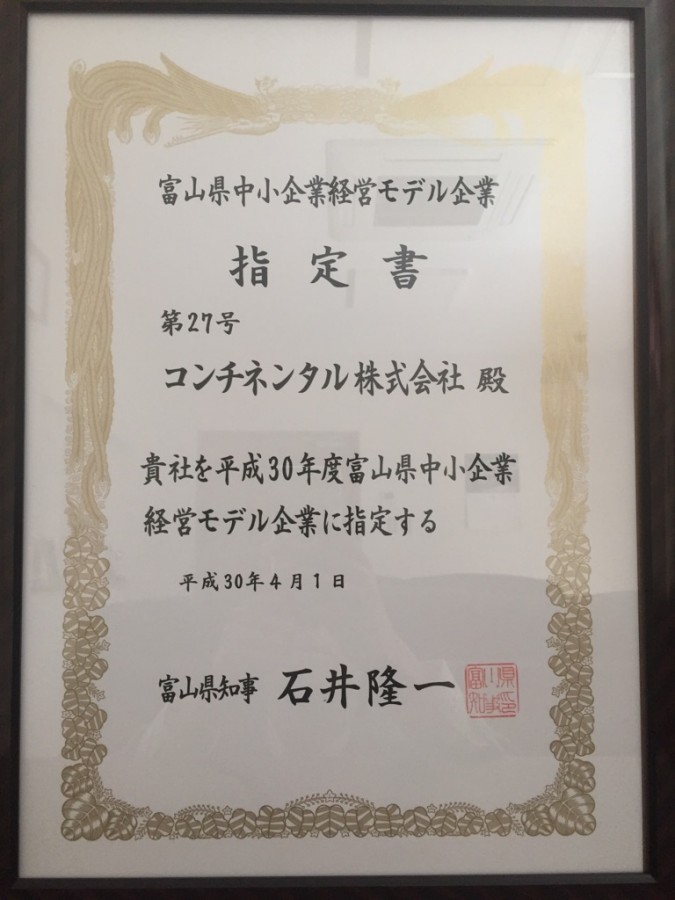 富山県中小企業経営モデル企業
指定書
第27号
コンチネンタル株式会社 殿
貴社を平成30年度富山県中小企業
経営モデル企業に指定する
平成30年4月1日
富山県知事 石井隆一